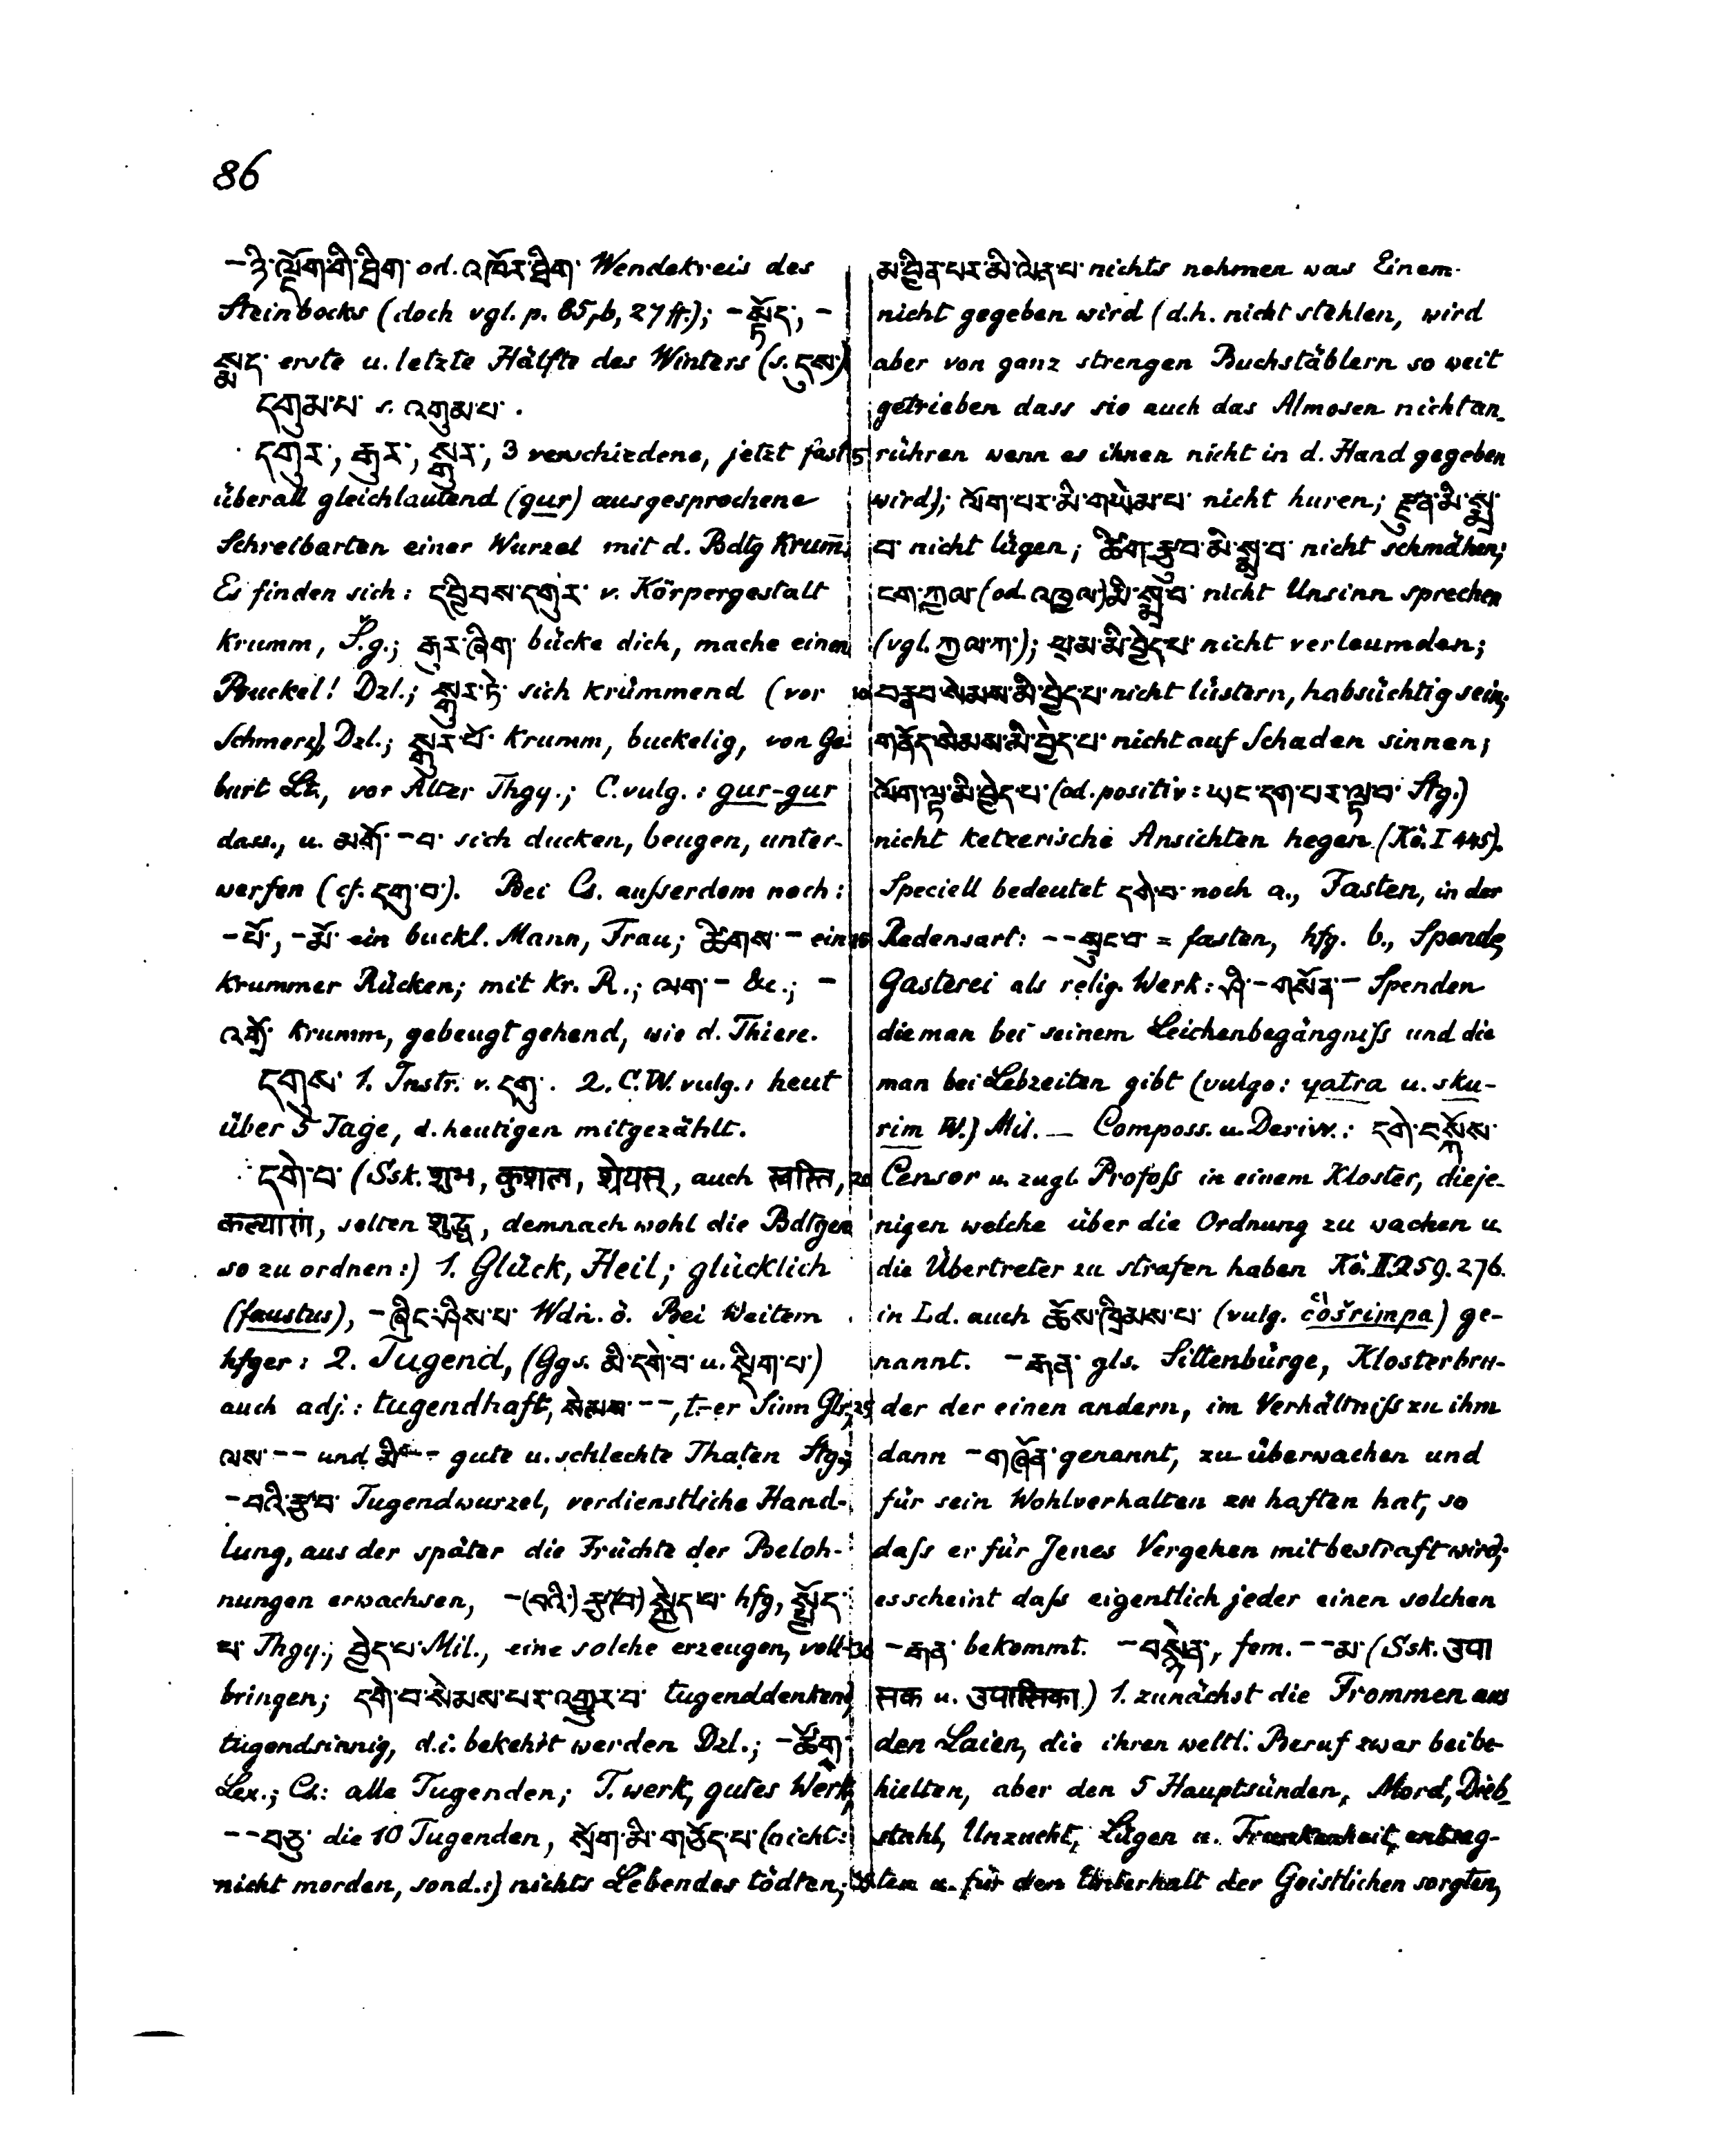 86
-ཉི་ལྡོག་གི་ཐིག་ od. འཁོར་ཐིག་ Wendekreis des
Steinbocks (doch vgl. p. 85, b, 27 ff.); -སྟོད་, -
སྨད་ erste u. letzte Hälfte des Winters (s. དུས་)
དགུམ་པ་ s. འགུམ་པ་.
དགུར་, རྒུར་, སྒུར་, 3 verschiedene, jetzt fast
überall gleichlautend (gur) ausgesprochene
Schreibarten einer Wurzel mit d. Bdtg krum̄.
Es finden sich: དབྱིབས་དགུར་ v. Körpergestalt
krumm, S.g.; རྒུར་ཞིག་ bücke dich, mache einen
Buckel! Dzl.; སྒུར་ཏེ་ sich krümmend (vor
Schmerz), Dzl.; སྒུར་པོ་ krumm, buckelig, von Ge-
burt Lt., vor Alter Thgy.; C. vulg.: gur-gur
dass., u. མགོ་-བ་ sich ducken, beugen, unter-
werfen (cf. དགུ་བ་). Bei Cs. außerdem noch:
-པོ་, -མོ་ ein buckl. Mann, Frau; ཚིགས་- ein
krummer Rücken; mit kr. R.; ལག་- &c.; -
འགྲོ་ krumm, gebeugt gehend, wie d. Thiere.
དགུས་ 1. Instr. v. དགུ་. 2. C. W. vulg.: heut
über 5 Tage, d. heutigen mitgezählt.
དགེ་བ་ (Ssk. शुभ, कुशल, श्रेयस्, auch स्वस्ति,
कल्याणं, selten शुद्ध, demnach wohl die Bdtgen
so zu ordnen:) 1. Glück, Heil; glücklich
(faustus), -ཞིང་ཤིས་པ་ Wdn. ö. Bei Weitem
hfger: 2. Tugend, (Ggs. མི་དགེ་བ་ u. སྡིག་པ་)
auch adj.: tugendhaft, སེམས་--, t-er Sinn Glr.;
ལས་-- und མི་-- gute u. schlechte Thaten Stg.;
-བའི་རྩ་བ་ Tugendwurzel, verdienstliche Hand-
lung, aus der später die Früchte der Beloh-
nungen erwachsen, -(བའི་) རྩ་(བ་) སྐྱེད་པ་ hfg, སྤྱོད་
པ་ Thgy.; བྱེད་པ་ Mil., eine solche erzeugen, voll-
bringen; དགེ་བ་སེམས་པར་འགྱུར་བ་ tugenddenkend,
tugendsinnig, d.i. bekehrt werden Dzl.; -ཚོགས་
Lex.; Cs.: alle Tugenden; T.werk, gutes Werk,
--བཅུ་ die 10 Tugenden, སྲོག་མི་གཅོད་པ་ (nicht:
nicht morden, sond.:) nichts Lebendes tödten;
མ་བྱིན་པར་མི་ལེན་པ་ nichts nehmen was Einem
nicht gegeben wird (d.h. nicht stehlen, wird
aber von ganz strengen Buchstäblern so weit
getrieben dass sie auch das Almosen nicht an-
5 rühren wenn es ihnen nicht in d. Hand gegeben
wird); ལོག་པར་མི་གཡེམ་པ་ nicht huren; རྫུན་མི་སྨྲ་
བ་ nicht lügen; ཚིག་རྩུབ་མི་སྨྲ་བ་ nicht schmähen;
ངག་ཀྱལ་ (od. འཁྱལ་) མི་སྨྲ་བ་ nicht Unsinn sprechen
(vgl. ཀྱལ་ཀ་); ཕྲ་མ་མི་བྱེད་པ་ nicht verleumden;
10 བརྣབ་སེམས་མི་བྱེད་པ་ nicht lüstern, habsüchtig sein;
གནོད་སེམས་མི་བྱེད་པ་ nicht auf Schaden sinnen;
ལོག་ལྟ་མི་བྱེད་པ་ (od. positiv: ཡང་དག་པར་ལྟ་བ་ Stg.)
nicht ketzerische Ansichten hegen (Kö. I 445).
Speciell bedeutet དགེ་བ་ noch a., Fasten, in der
15 Redensart: --སྲུང་བ་ = fasten, hfg. b., Spende,
Gasterei als relig. Werk: ཤི་-གསོན་- Spenden
die man bei seinem Leichenbegängniß und die
man bei Lebzeiten gibt (vulgo: yatra u. sku-
rim W.) Mil. — Composs. u. Derivv.: དགེ་བསྐོས་
20 Censor u. zugl. Profoß in einem Kloster, dieje-
nigen welche über die Ordnung zu wachen u.
die Übertreter zu strafen haben Kö. II. 259. 276.
in Ld. auch ཆོས་ཁྲིམས་པ་ (vulg. čʽòšrimpa) ge-
nannt. -རྒན་ gls. Sittenbürge, Klosterbru-
25 der der einen andern, im Verhältniß zu ihm
dann -གཞོན་ genannt, zu überwachen und
für sein Wohlverhalten zu haften hat, so
daß er für Jenes Vergehen mitbestraft wird;
es scheint daß eigentlich jeder einen solchen
30 -རྒན་ bekommt. -བསྙེན་, fem. --མ་ (Ssk. उपा
सक u. उपासिका) 1. zunächst die Frommen aus
den Laien, die ihren weltl. Beruf zwar beibe-
hielten, aber den 5 Hauptsünden, Mord, Dieb-
stahl, Unzucht, Lügen u. Trunkenheit, entsag-
ten u. für den Unterhalt der Geistlichen sorgten,